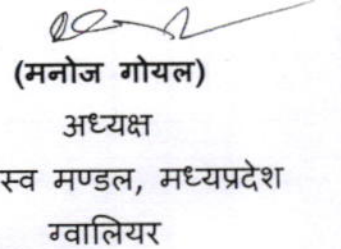 (मनोज गोयल)
अध्यक्ष
स्व मण्डल, मध्यप्रदेश
ग्वालियर